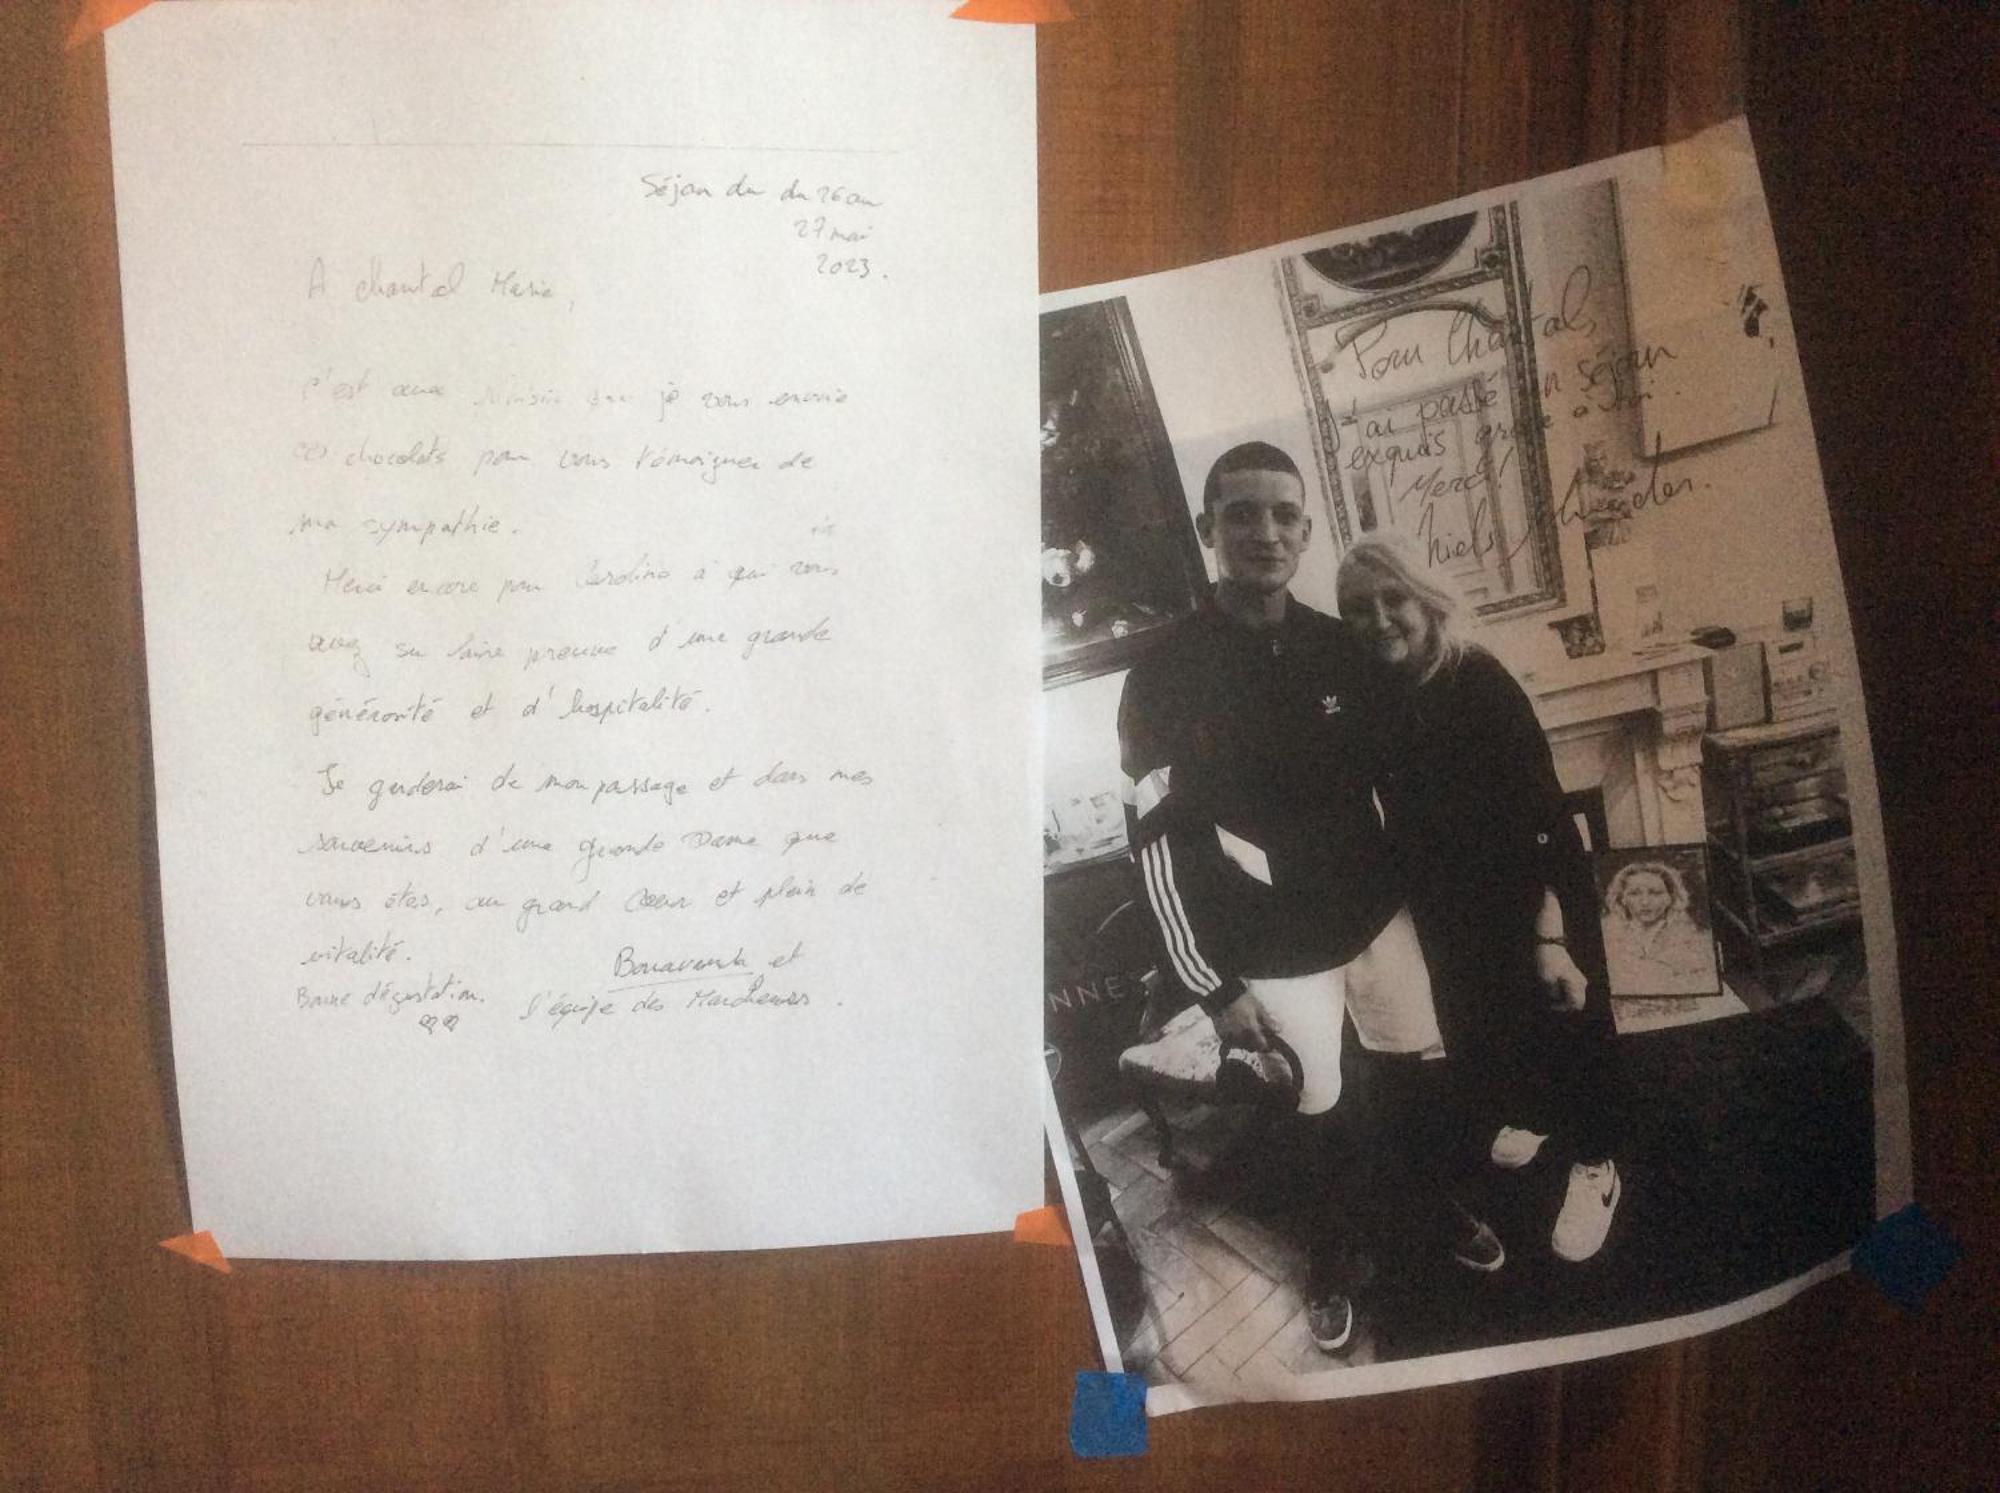 Séjour du du 26 au
27 mai
2023.
A Chantal Marie,
C'est avec je vous envoie
ces chocolats pour vous témoigner de
ma sympathie.
Merci encore pour à qui vous
avez su faire preuve d'une grande
générosité et d'hospitalité.
Je garderai de mon passage et dans mes
souvenirs d'une grande Dame que
vous êtes, au grand Coeur et plein de
vitalité.
Bonne dégustation.
Bonaventure et
l'équipe des
Pour Chantal,
J'ai passé un séjour
exquis grâce à toi.
Merci!
Niels
NNE